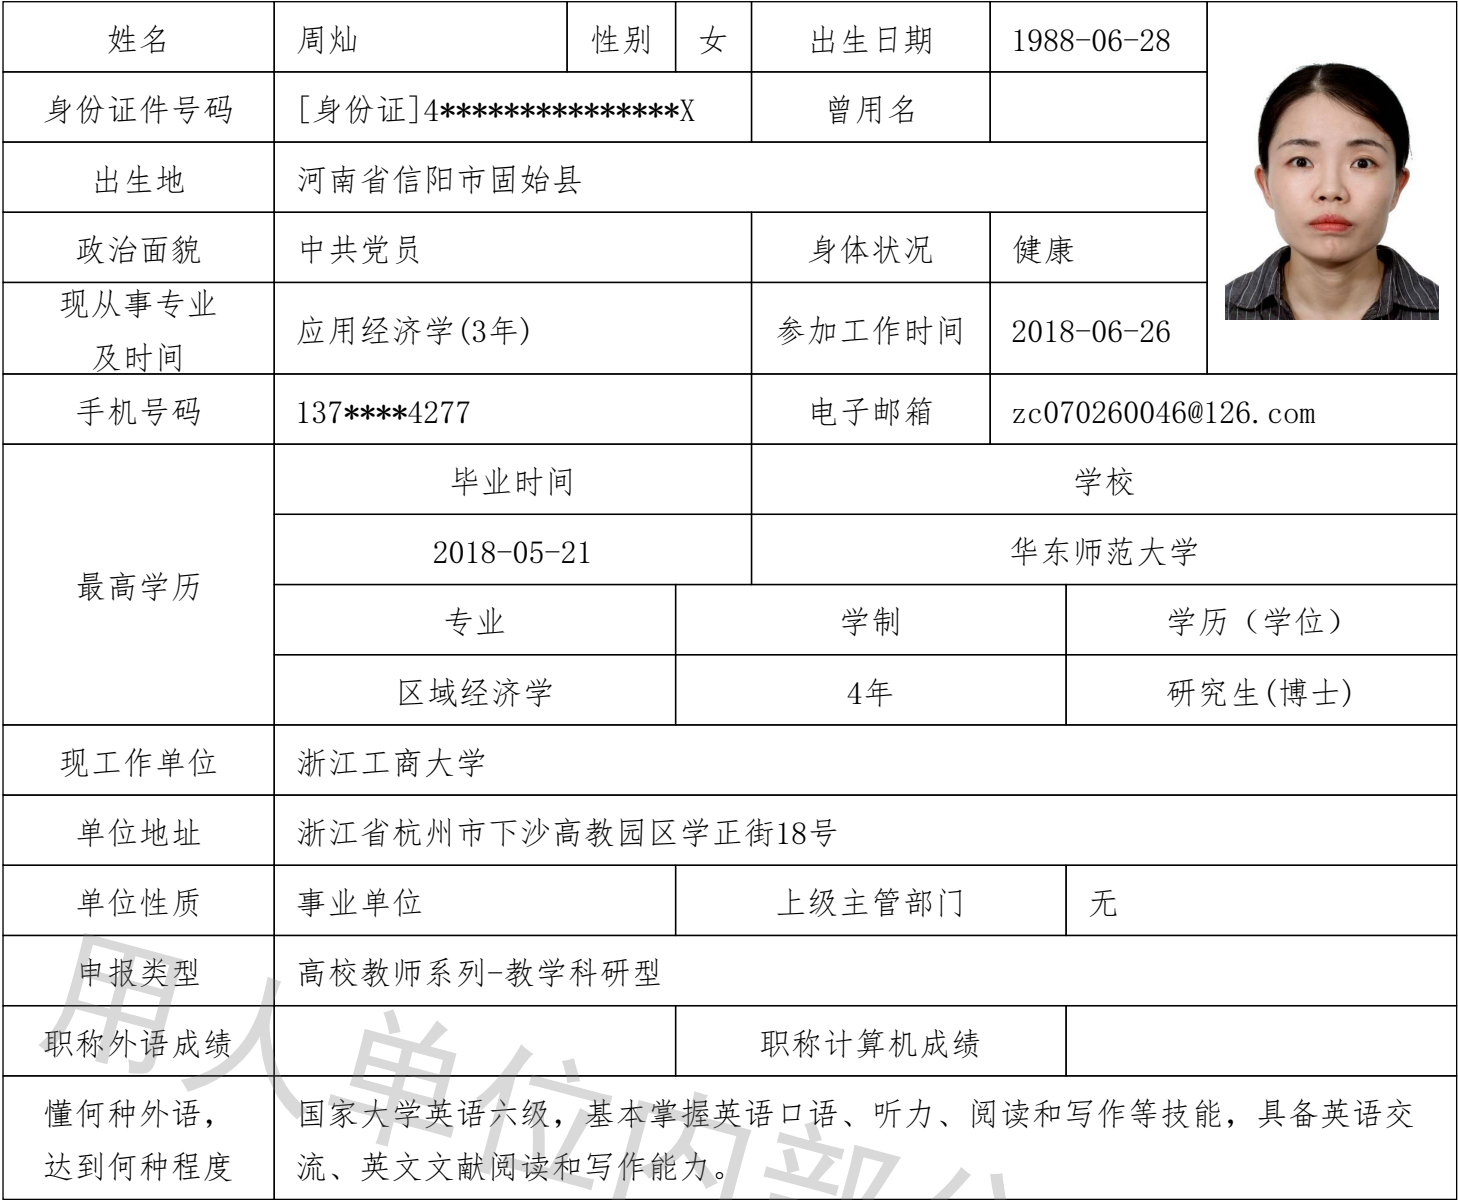 姓名 周灿 性别 女 出生日期 1988-06-28
身份证件号码 [身份证]4***************X 曾用名
出生地 河南省信阳市固始县
政治面貌 中共党员 身体状况 健康
现从事专业
及时间 应用经济学(3年) 参加工作时间 2018-06-26
手机号码 137****4277 电子邮箱 zc070260046@126.com
最高学历
毕业时间 学校
2018-05-21 华东师范大学
专业 学制 学历（学位）
区域经济学 4年 研究生(博士)
现工作单位 浙江工商大学
单位地址 浙江省杭州市下沙高教园区学正街18号
单位性质 事业单位 上级主管部门 无
申报类型 高校教师系列-教学科研型
职称外语成绩 职称计算机成绩
懂何种外语， 国家大学英语六级，基本掌握英语口语、听力、阅读和写作等技能，具备英语交
达到何种程度 流、英文文献阅读和写作能力。
用人单位内部